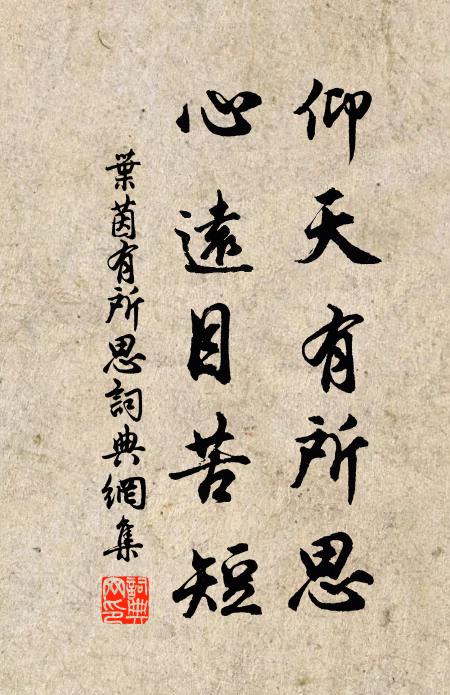 仰天有所思
心遠目苦短
葉茵有所思詞典網集
詞典網印